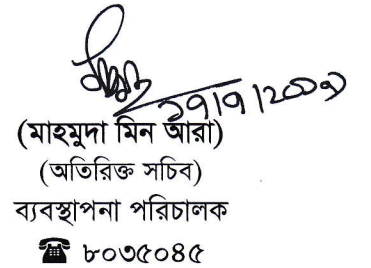 (মাহমুদা মিন আরা)
(অতিরিক্ত সচিব)
ব্যবস্থাপনা পরিচালক
☎ ৮০৩৫০৪৫